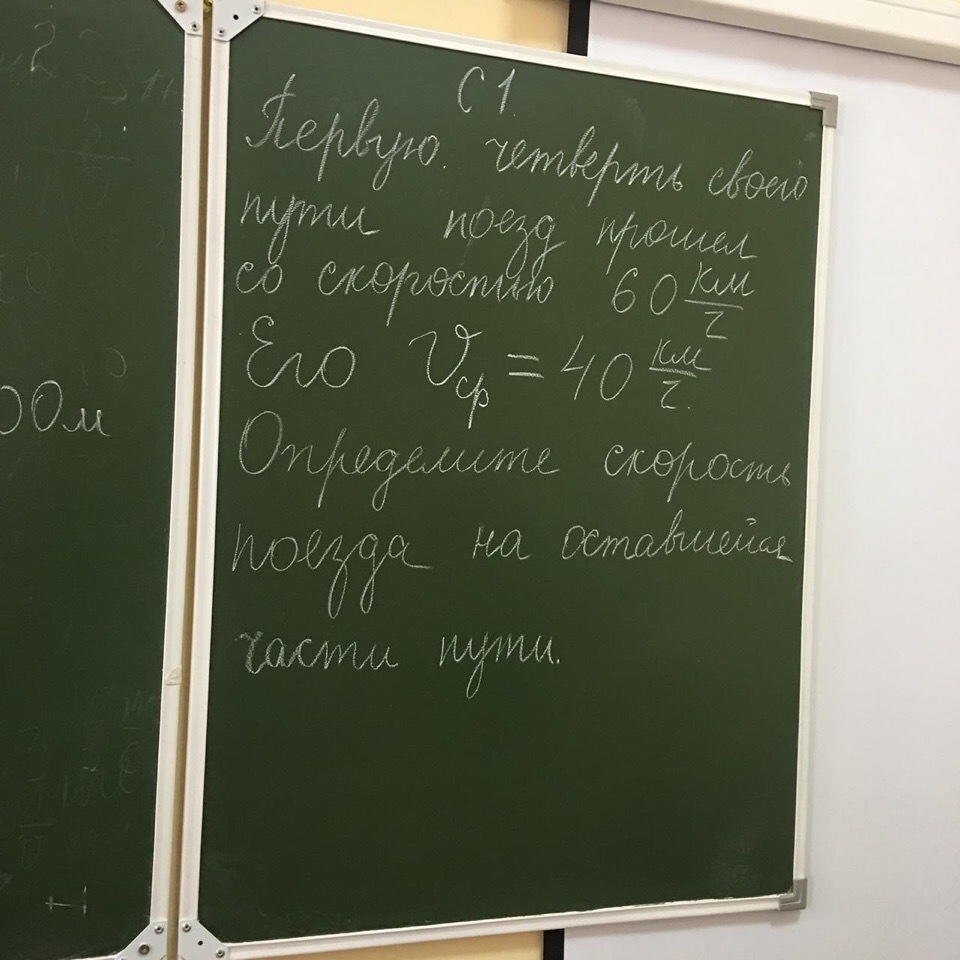 2
00м
С1.
Первую четверть своего
пути поезд прошел
со скоростью 60 км/ч
Его Vср = 40 км/ч.
Определите скорость
поезда на оставшейся
части пути.